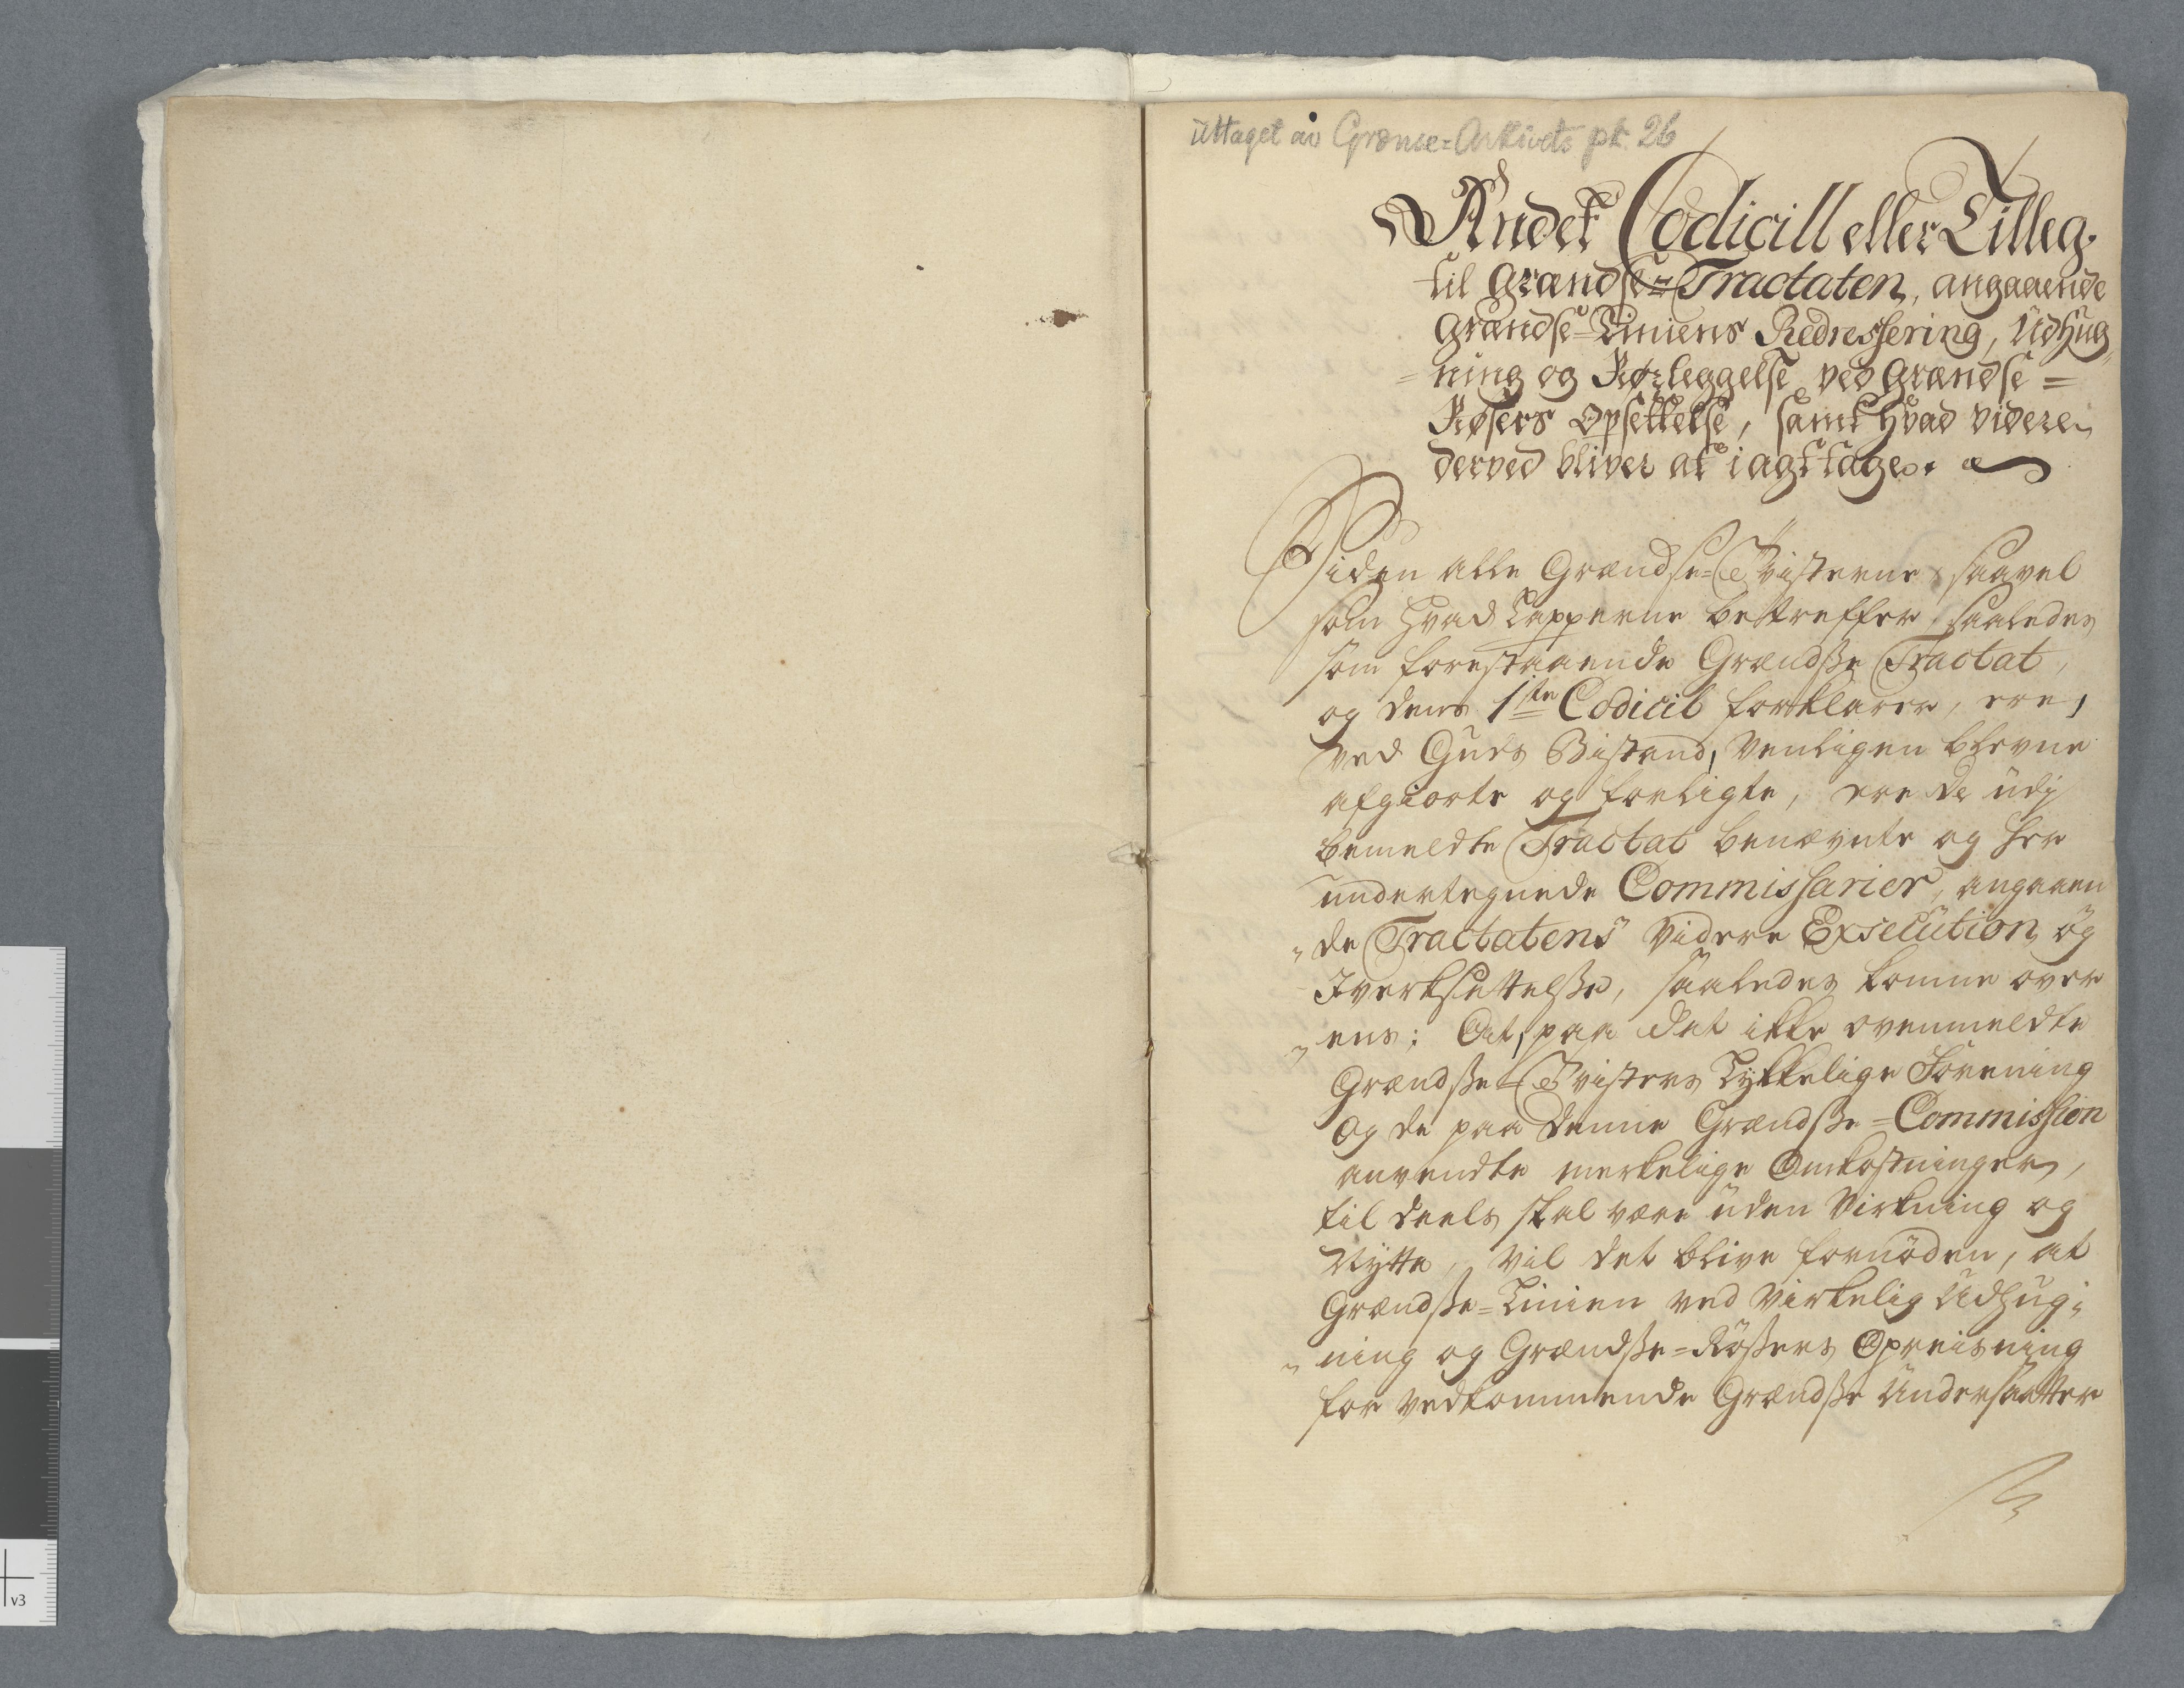 Uttaget av Grænse-Arkivets pk. 26
Andet Codicill eller Tilleg
til Grændse-Tractaten, angaaende
Grændse-Liniens Redressering, Udhug,,
=ning og Rørleggelse ved Grændse=
Røsers Opsettelse, samt hvad videre
derved bliver at iagttage.
Siden alle Grændse-Tvisterne saavel
som hvad Lapperne betreffer, saaledes
som forestaaende Grændsse Tractat,
og dens 1ste Codicil forklarer, ere,
ved Guds Bistand, venligen blevne
afgiorte og forligte, ere de udj
bemeldte Tractat benævnte og her
undertegnede Commissarier, angaaen
,,de Tractatens videre Exsecution og
Iverksettelsse, saaledes komne over
,,ens: At, paa det ikke ovenmeldte
Grændsse-Tvisters Lykkelige Forening
og de paa denne Grændsse=Commission
anvendte merkelige Omkostninger,
til deels skal være uden Virkning og
Nytte, vil det blive fornöden, at
Grændsse=Linien ved virkelig Udhug,,
,,ning og Grændsse=Rössers Opreisning
for vedkommende Grændsse Undersaatter